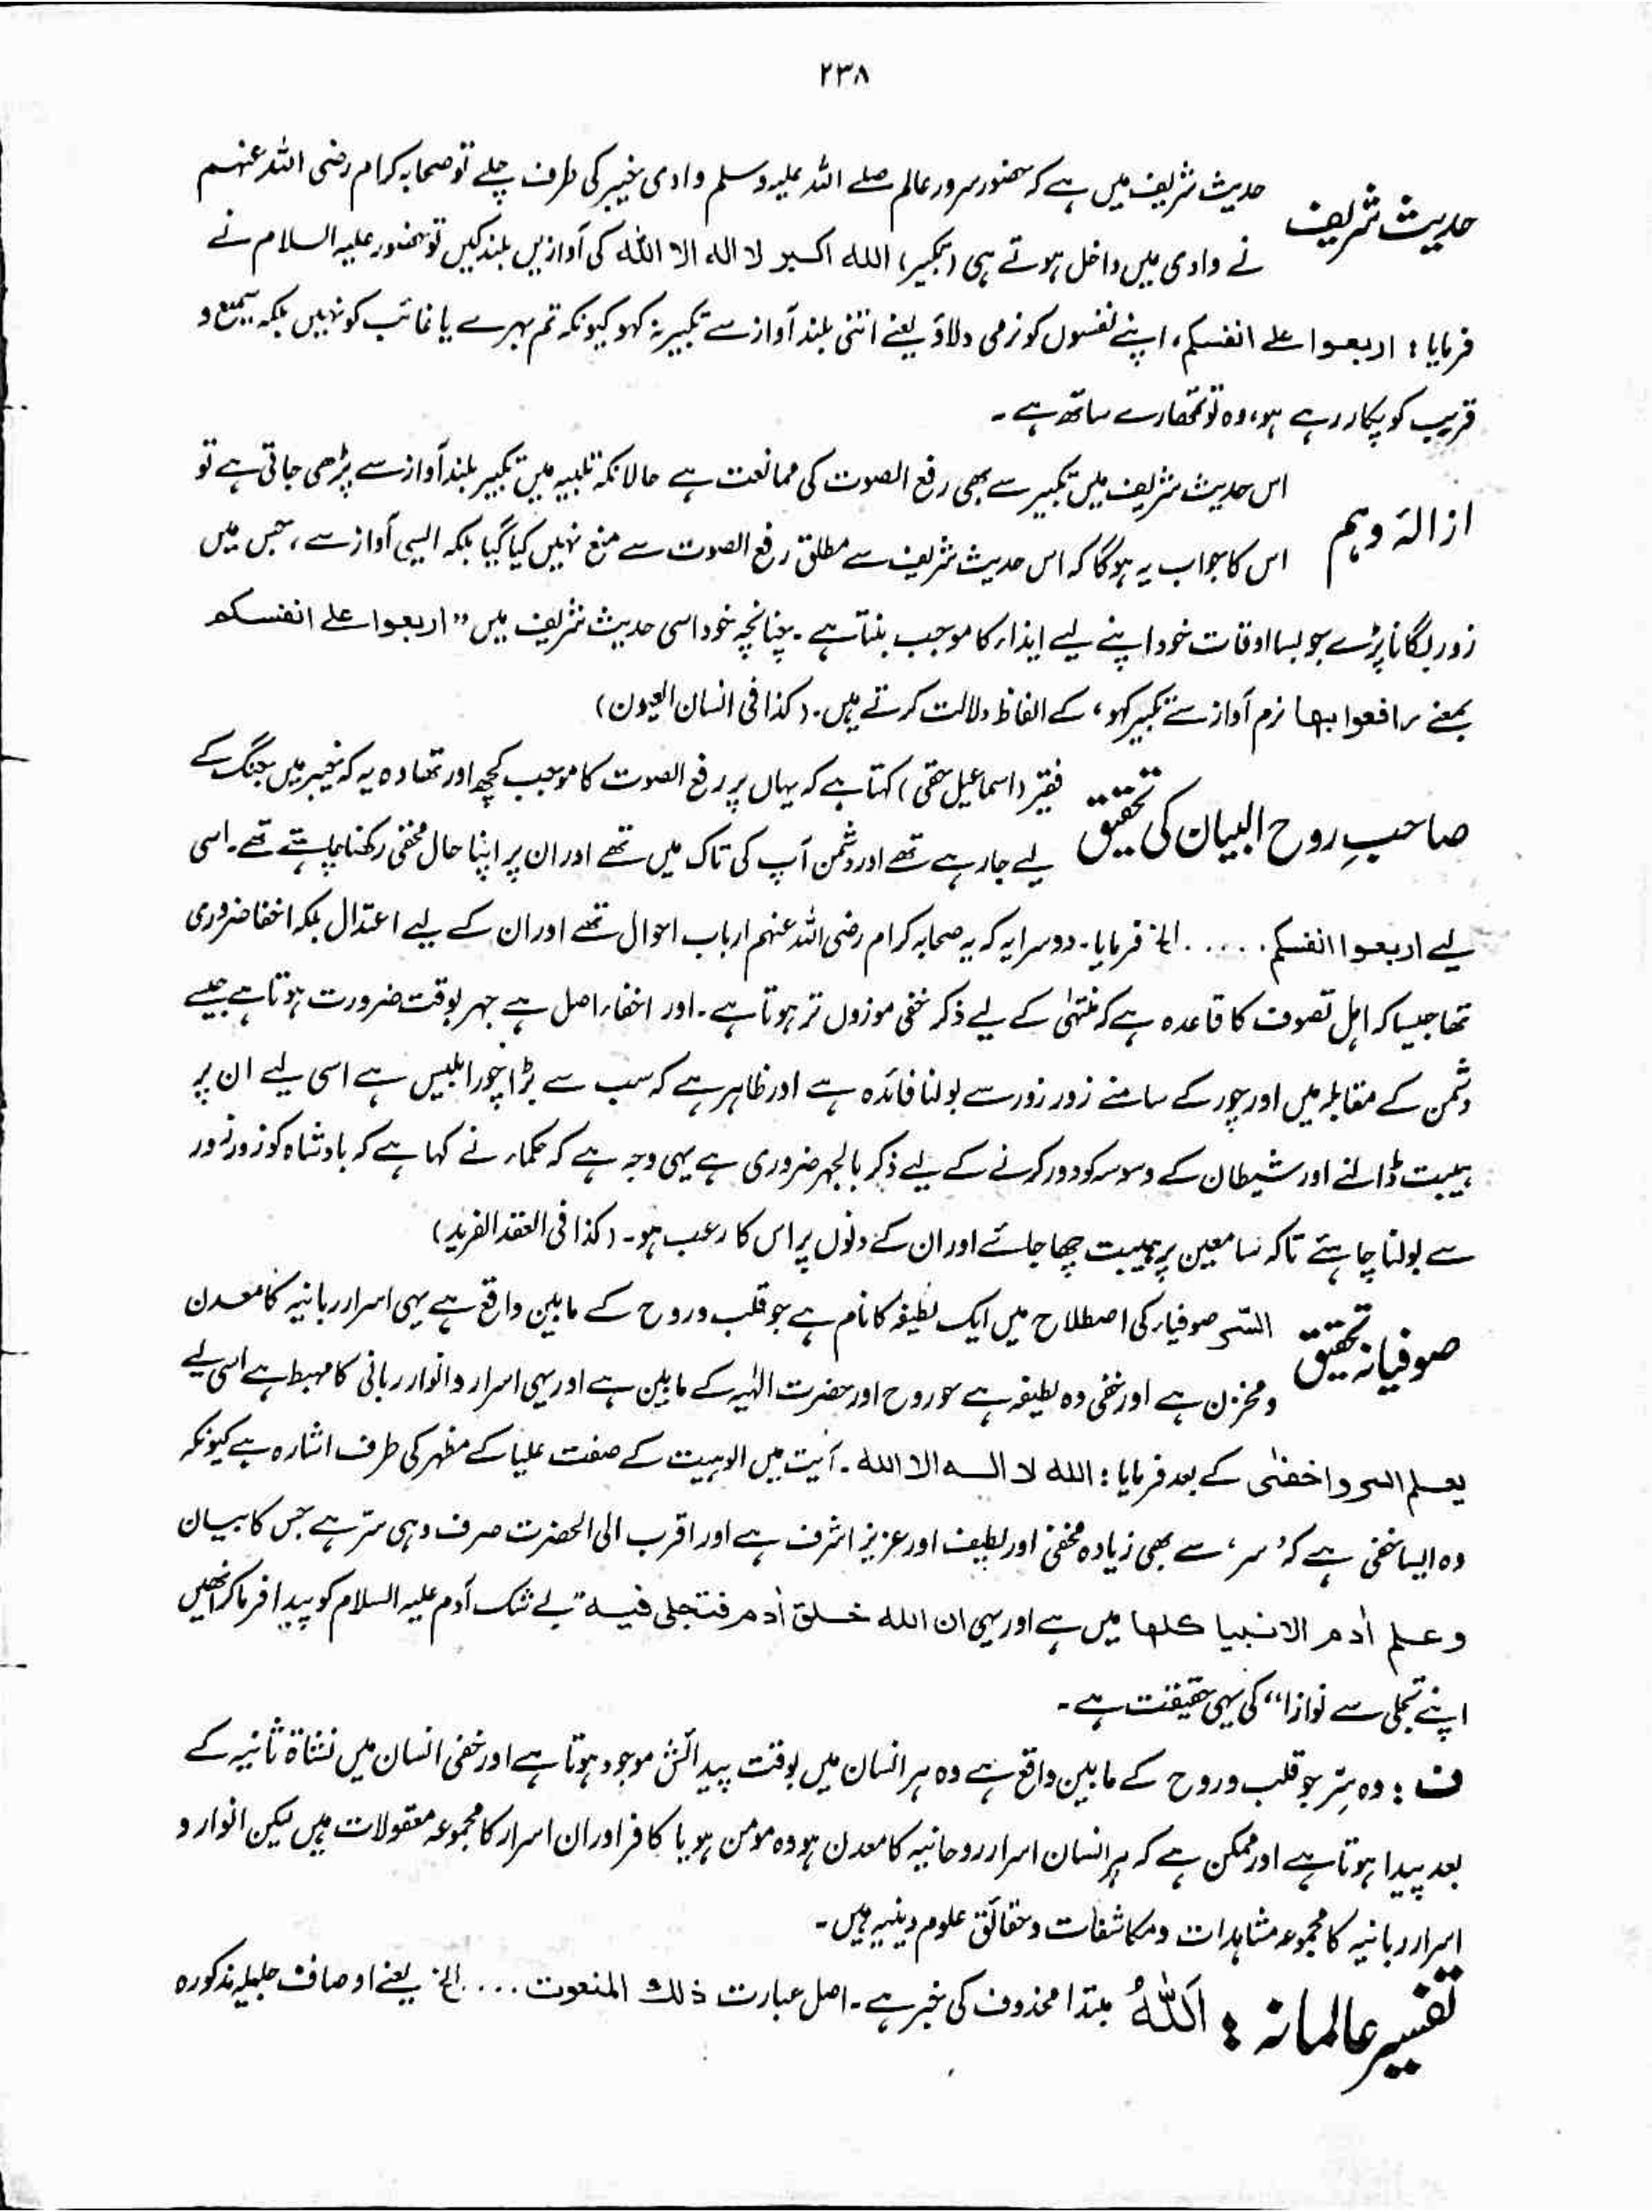 ۲۳۸
حدیث شریف
حدیث شریف میں ہے کہ حضور سرور عالم صلے اللہ علیہ وسلم وادی خیبر کی طرف چلے تو صحابہ کرام رضی اللہ عنہم
نے وادی میں داخل ہوتے ہی (تکبیر) اللہ اکبر لا الہ الا اللہ کی آوازیں بلند کیں تو حضور علیہ السلام نے
فرمایا : اربعوا علے انفسکم، اپنے نفسوں کو نرمی دلاؤ یعنے اتنی بلند آواز سے تکبیر نہ کہو کیونکہ تم بہرے یا غائب کو نہیں بلکہ سمیع و
قریب کو پکار رہے ہو، وہ تو تمھارے ساتھ ہے۔
ازالۂ وہم
اس حدیث شریف میں تکبیر سے بھی رفع الصوت کی ممانعت ہے حالانکہ تلبیہ میں تکبیر بلند آواز سے پڑھی جاتی ہے تو
اس کا جواب یہ ہوگا کہ اس حدیث شریف سے مطلق رفع الصوت سے منع نہیں کیا گیا بلکہ ایسی آواز سے، جس میں
زور لگانا پڑے جو بسا اوقات خود اپنے لیے ایذاء کا موجب بنتا ہے۔ چنانچہ خود اسی حدیث شریف میں " اربعوا علے انفسکم
بمعنے رافعوا بھا نرم آواز سے تکبیر کہو، کے الفاظ دلالت کرتے ہیں۔ (کذا فی انسان العیون)
صاحبِ روح البیان کی تحقیق
فقیر (اسماعیل حقی) کہتا ہے کہ یہاں پر رفع الصوت کا موجب کچھ اور تھا وہ یہ کہ خیبر میں جنگ کے
لیے جا رہے تھے اور دشمن آپ کی تاک میں تھے اور ان پر اپنا حال مخفی رکھنا چاہتے تھے۔ اسی
لیے اربعوا انفسکم ..... الخ فرمایا۔ دوسرا یہ کہ یہ صحابہ کرام رضی اللہ عنہم ارباب احوال تھے اور ان کے لیے اعتدال بلکہ اخفا ضروری
تھا جیسا کہ اہل تصوف کا قاعدہ ہے کہ منتہٰی کے لیے ذکر خفی موزوں تر ہوتا ہے۔ اور اخفاء اصل ہے جہر بوقت ضرورت ہوتا ہے جیسے
دشمن کے مقابلہ میں اور چور کے سامنے زور زور سے بولنا فائدہ ہے اور ظاہر ہے کہ سب سے بڑا چور ابلیس ہے اسی لیے ان پر
ہیبت ڈالنے اور شیطان کے وسوسہ کو دور کرنے کے لیے ذکر بالجہر ضروری ہے یہی وجہ ہے کہ حکماء نے کہا ہے کہ بادشاہ کو زور زور
سے بولنا چاہئے تاکہ سامعین پر ہیبت چھا جائے اور ان کے دلوں پر اس کا رعب ہو۔ (کذا فی العقد الفرید)
صوفیانہ تحقیق
السّر صوفیاء کی اصطلاح میں ایک لطیفہ کا نام ہے جو قلب و روح کے مابین واقع ہے یہی اسرار ربانیہ کا معدن
و مخزن ہے اور خفی وہ لطیفہ ہے جو روح اور حضرت الٰہیہ کے مابین ہے اور یہی اسرار و انوار ربانی کا مہبط ہے اسی لیے
یعلم السر واخفیٰ کے بعد فرمایا : اللہ لا الہ الا اللہ۔ آیت میں الوہیت کے صفت علیا کے مظہر کی طرف اشارہ ہے کیونکہ
وہ ایسا خفی ہے کہ 'سر' سے بھی زیادہ مخفی اور لطیف اور عزیز اشرف ہے اور اقرب الی الحضرت صرف وہی سرّ ہے جس کا بیان
وعلم اٰدم الانبیا کلھا میں ہے اور یہی ان اللہ خلق اٰدم فتجلی فیہ "بے شک آدم علیہ السلام کو پیدا فرما کر انھیں
اپنے تجلی سے نوازا" کی یہی حقیقت ہے۔
ف : وہ سِرّ جو قلب و روح کے مابین واقع ہے وہ ہر انسان میں بوقت پیدائش موجود ہوتا ہے اور خفی انسان میں نشاۃ ثانیہ کے
بعد پیدا ہوتا ہے اور ممکن ہے کہ ہر انسان اسرار روحانیہ کا معدن ہو وہ مومن ہو یا کافر اور ان اسرار کا مجموعہ معقولات ہیں لیکن انوار و
اسرار ربانیہ کا مجموعہ مشاہدات و مکاشفات و حقائق علوم دینیہ ہیں۔
تفسیر عالمانہ : اَللّٰہُ مبتدا محذوف کی خبر ہے۔ اصل عبارت ذلك المنعوت .... الخ یعنے اوصاف جلیلہ مذکورہ